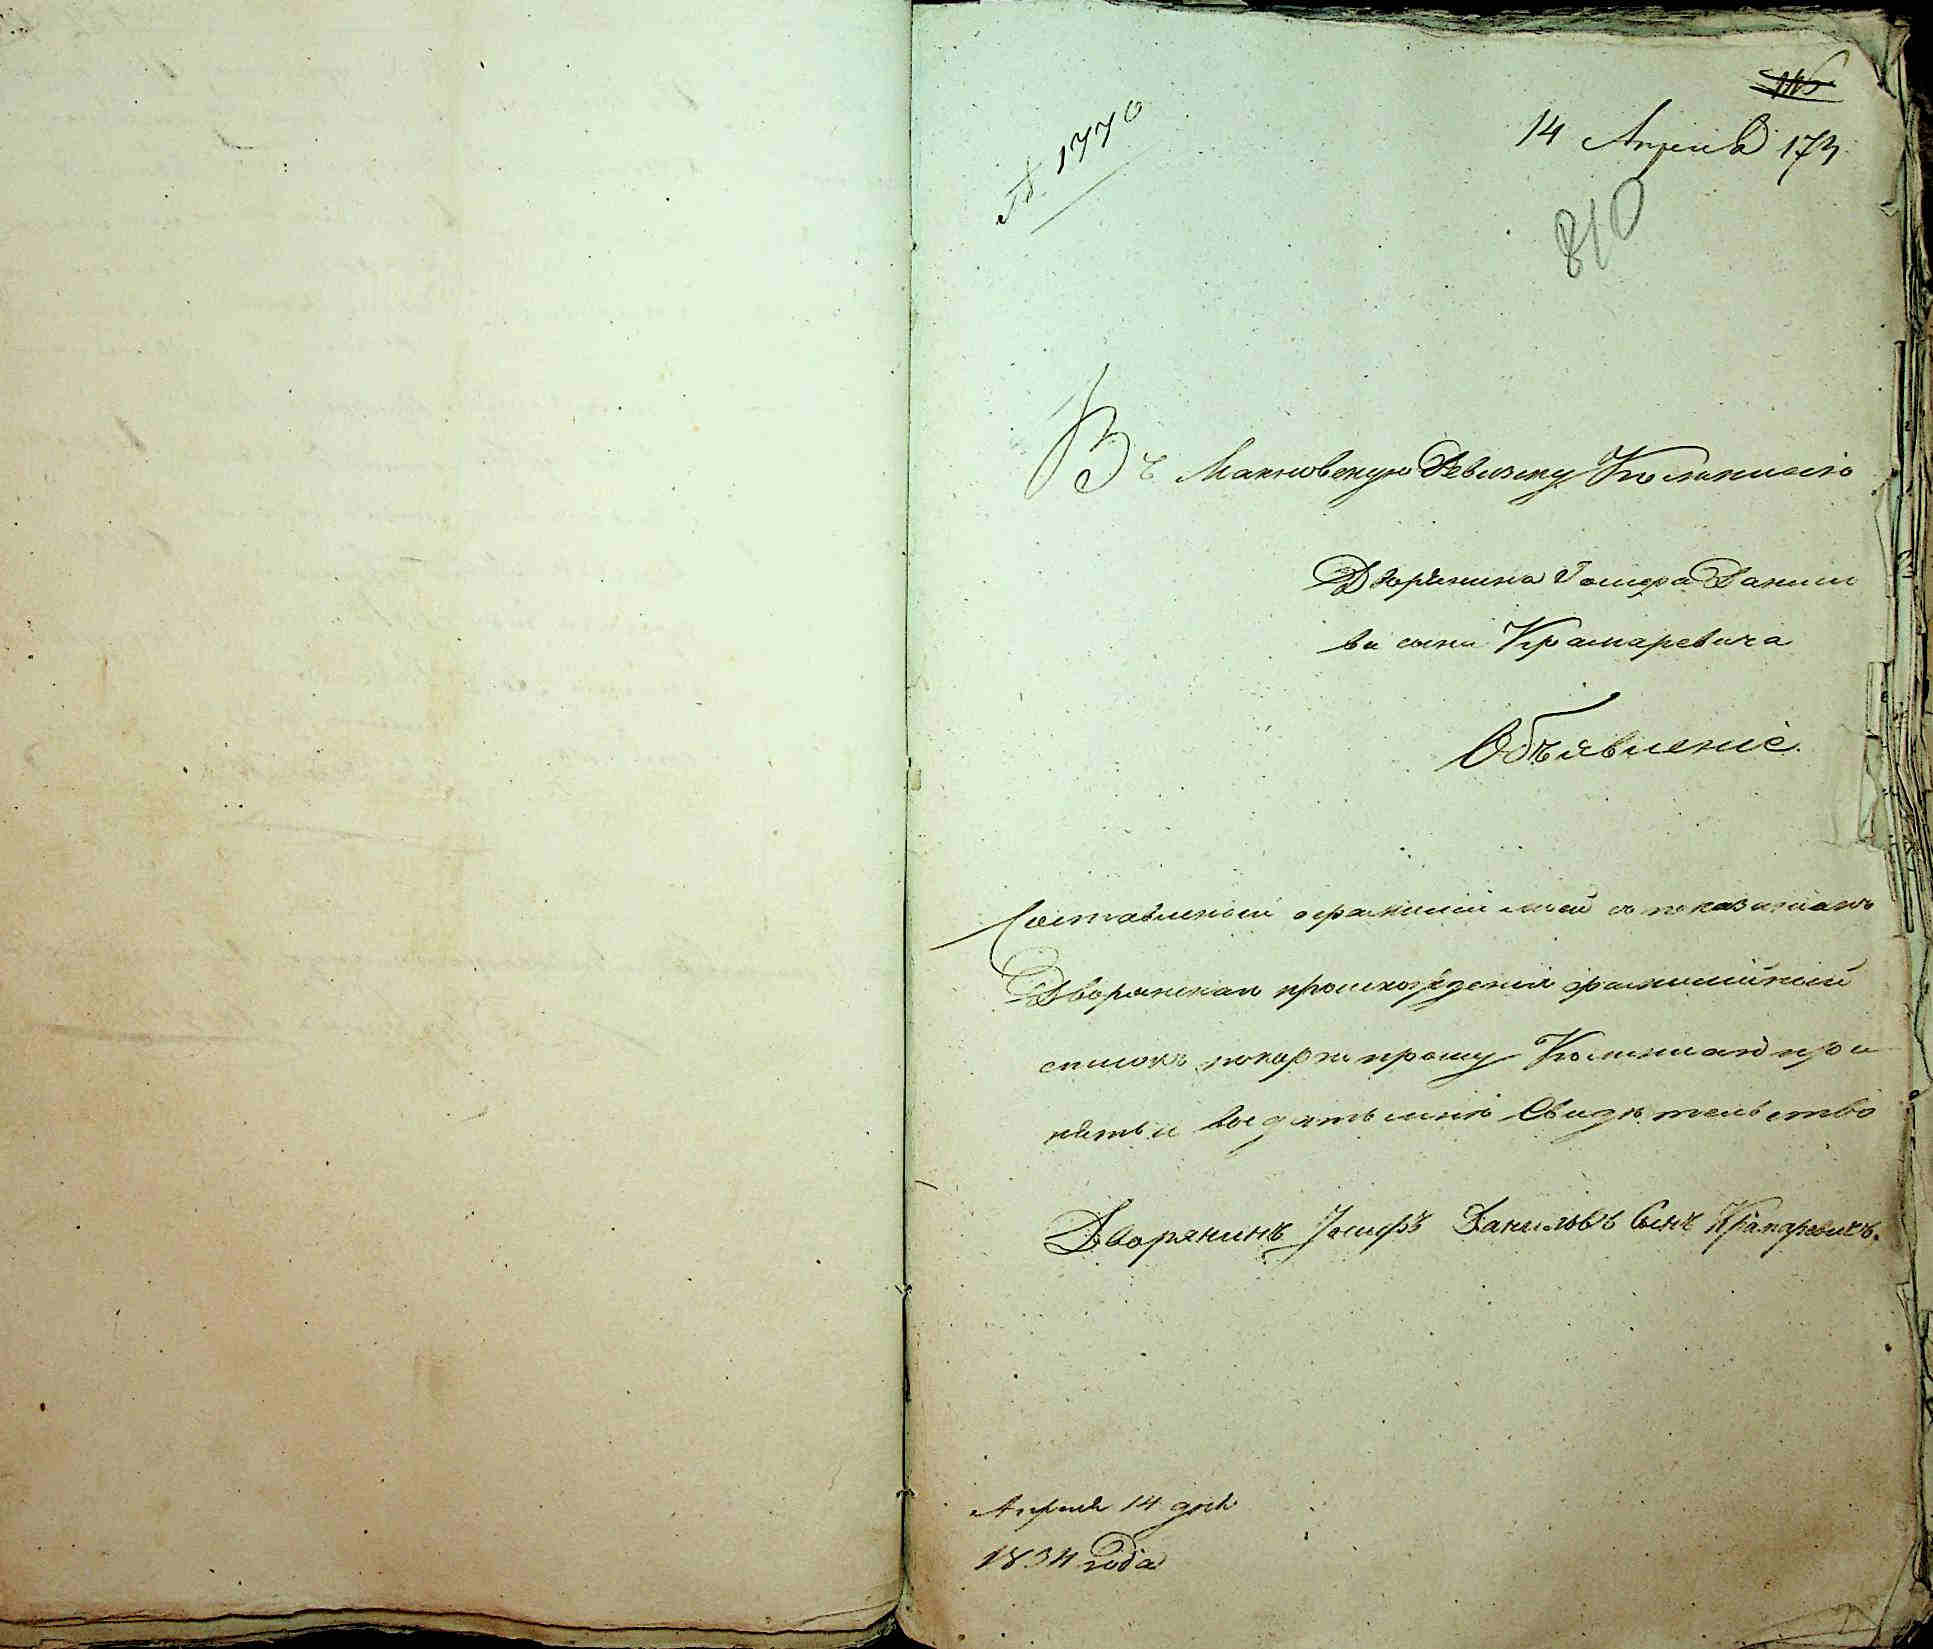 № 1770
14 Апреля 173
810
Въ Махновскую Ревизскую Коммисію
Дворянина Іосифа Данило
ва сына Крамаревича
Объявленіе.
Составленный о фамиліи моей съ показаніемъ
Дворянскаго происхожденія фамилійный
списокъ покорно прошу Коммисію при
нять и выдать мнѣ Свидѣтельство
Дворянинъ Іосифъ Данильвъ Сынъ Крамаревичъ.
Апреля 14 дня
1834 года